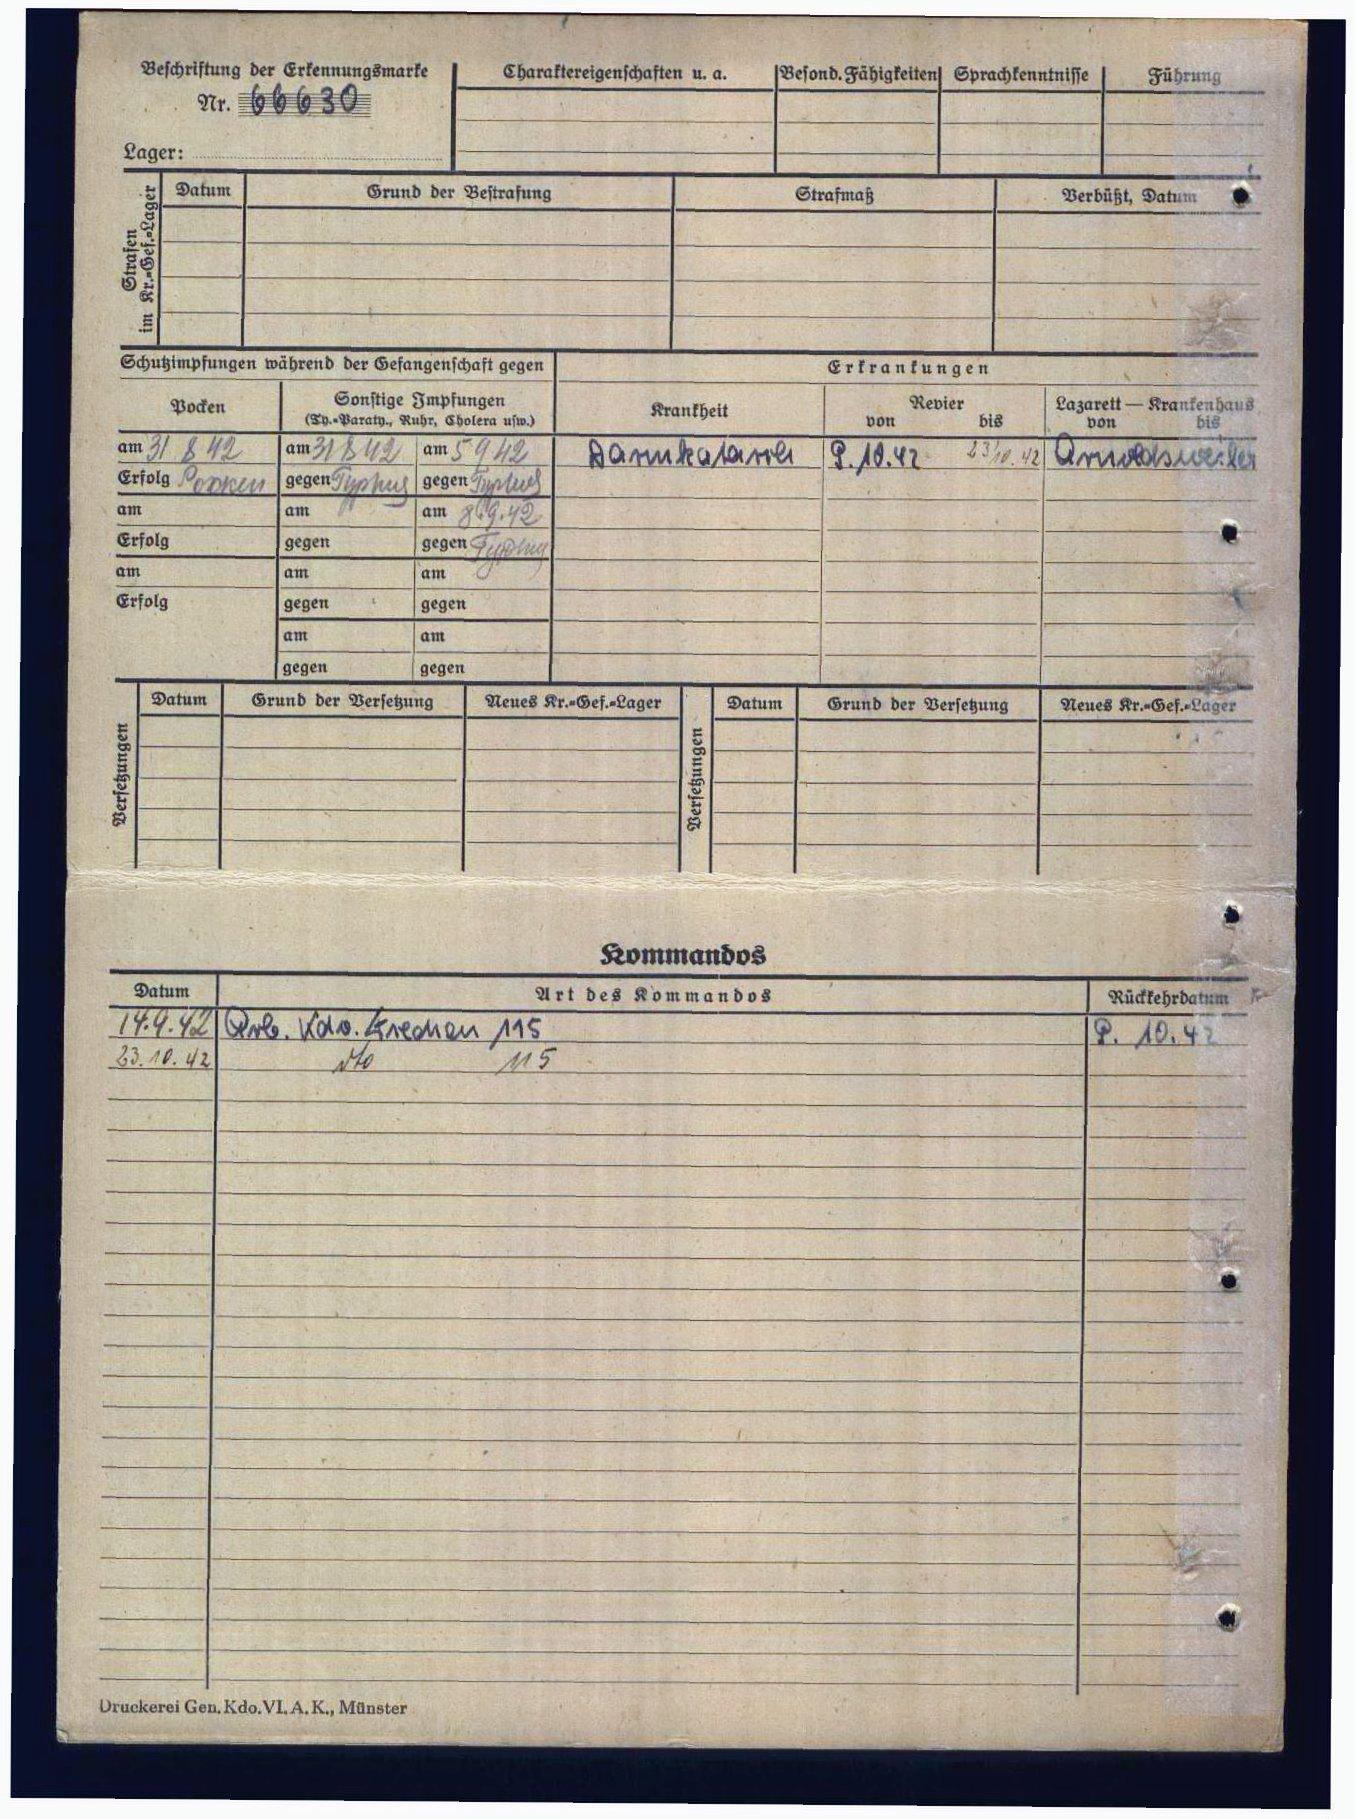 Beschriftung der Erkennungsmarke
Nr. 66630
Lager:
Charaktereigenschaften u. a.
Besond. Fähigkeiten
Sprachkenntnisse
Führung
Strafen im Kr.-Gef.-Lager
Datum
Grund der Bestrafung
Strafmaß
Verbüßt, Datum
Schutzimpfungen während der Gefangenschaft gegen
Erkrankungen
Pocken
Sonstige Impfungen
(Ty.-Paraty., Ruhr, Cholera usw.)
Krankheit
Revier
von bis
Lazarett — Krankenhaus
von bis
am 31 8 42 am 31 8 42 am 5 9 42 Darmkatarrh 9.10.42 23/10.42 Arnoldsweiler
Erfolg Pocken gegen Typhus gegen Typhus
am am am 8.9.42
Erfolg gegen gegen Typhus
am am am
Erfolg gegen gegen
am am
gegen gegen
Versetzungen
Datum Grund der Versetzung Neues Kr.-Gef.-Lager
Versetzungen
Datum Grund der Versetzung Neues Kr.-Gef.-Lager
Kommandos
Datum Art des Kommandos Rückkehrdatum
14.9.42 Arb. Kdo. 115 9. 10. 42
23.10.42 dto 115
Druckerei Gen. Kdo. VI. A. K., Münster